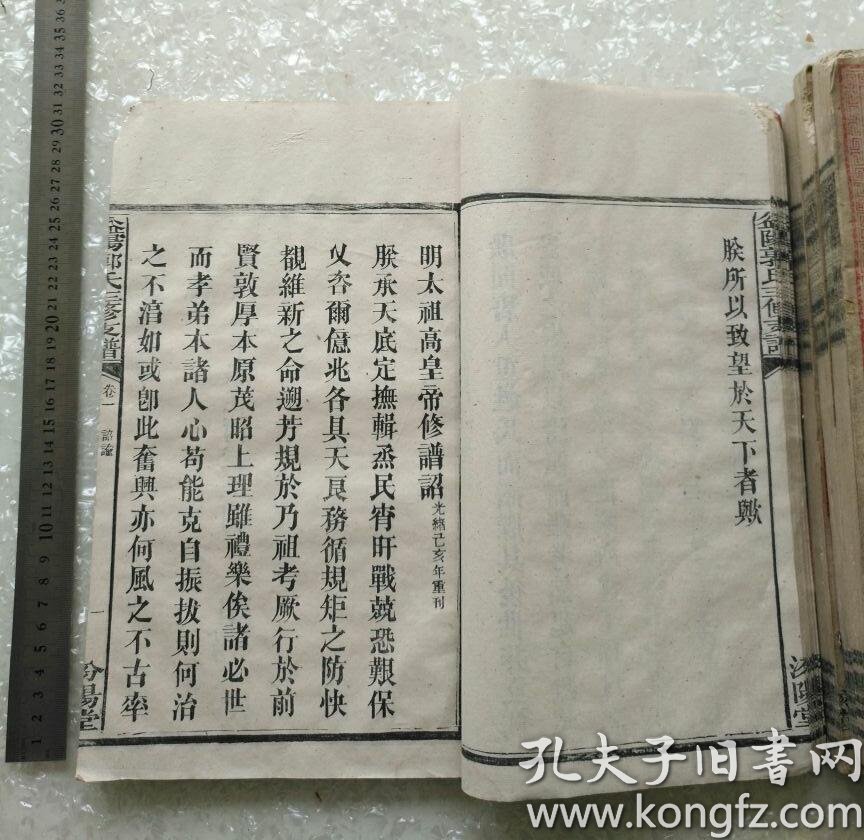 朕所以致望於天下者歟
益陽郭氏三修支譜
汾陽堂
明太祖高皇帝修譜詔 光緒己亥年重刊
朕承天底定撫輯烝民宵旰戰兢恐艱保
乂咨爾億兆各具天良務循規矩之防快
覩維新之命遡芳規於乃祖考厥行於前
賢敦厚本原茂昭上理雖禮樂俟諸必世
而孝弟本諸人心苟能克自振拔則何治
之不滈如或卽此奮興亦何風之不古率
益陽郭氏三修支譜 卷一 詔諭 一 汾陽堂
孔夫子旧书网
www.kongfz.com